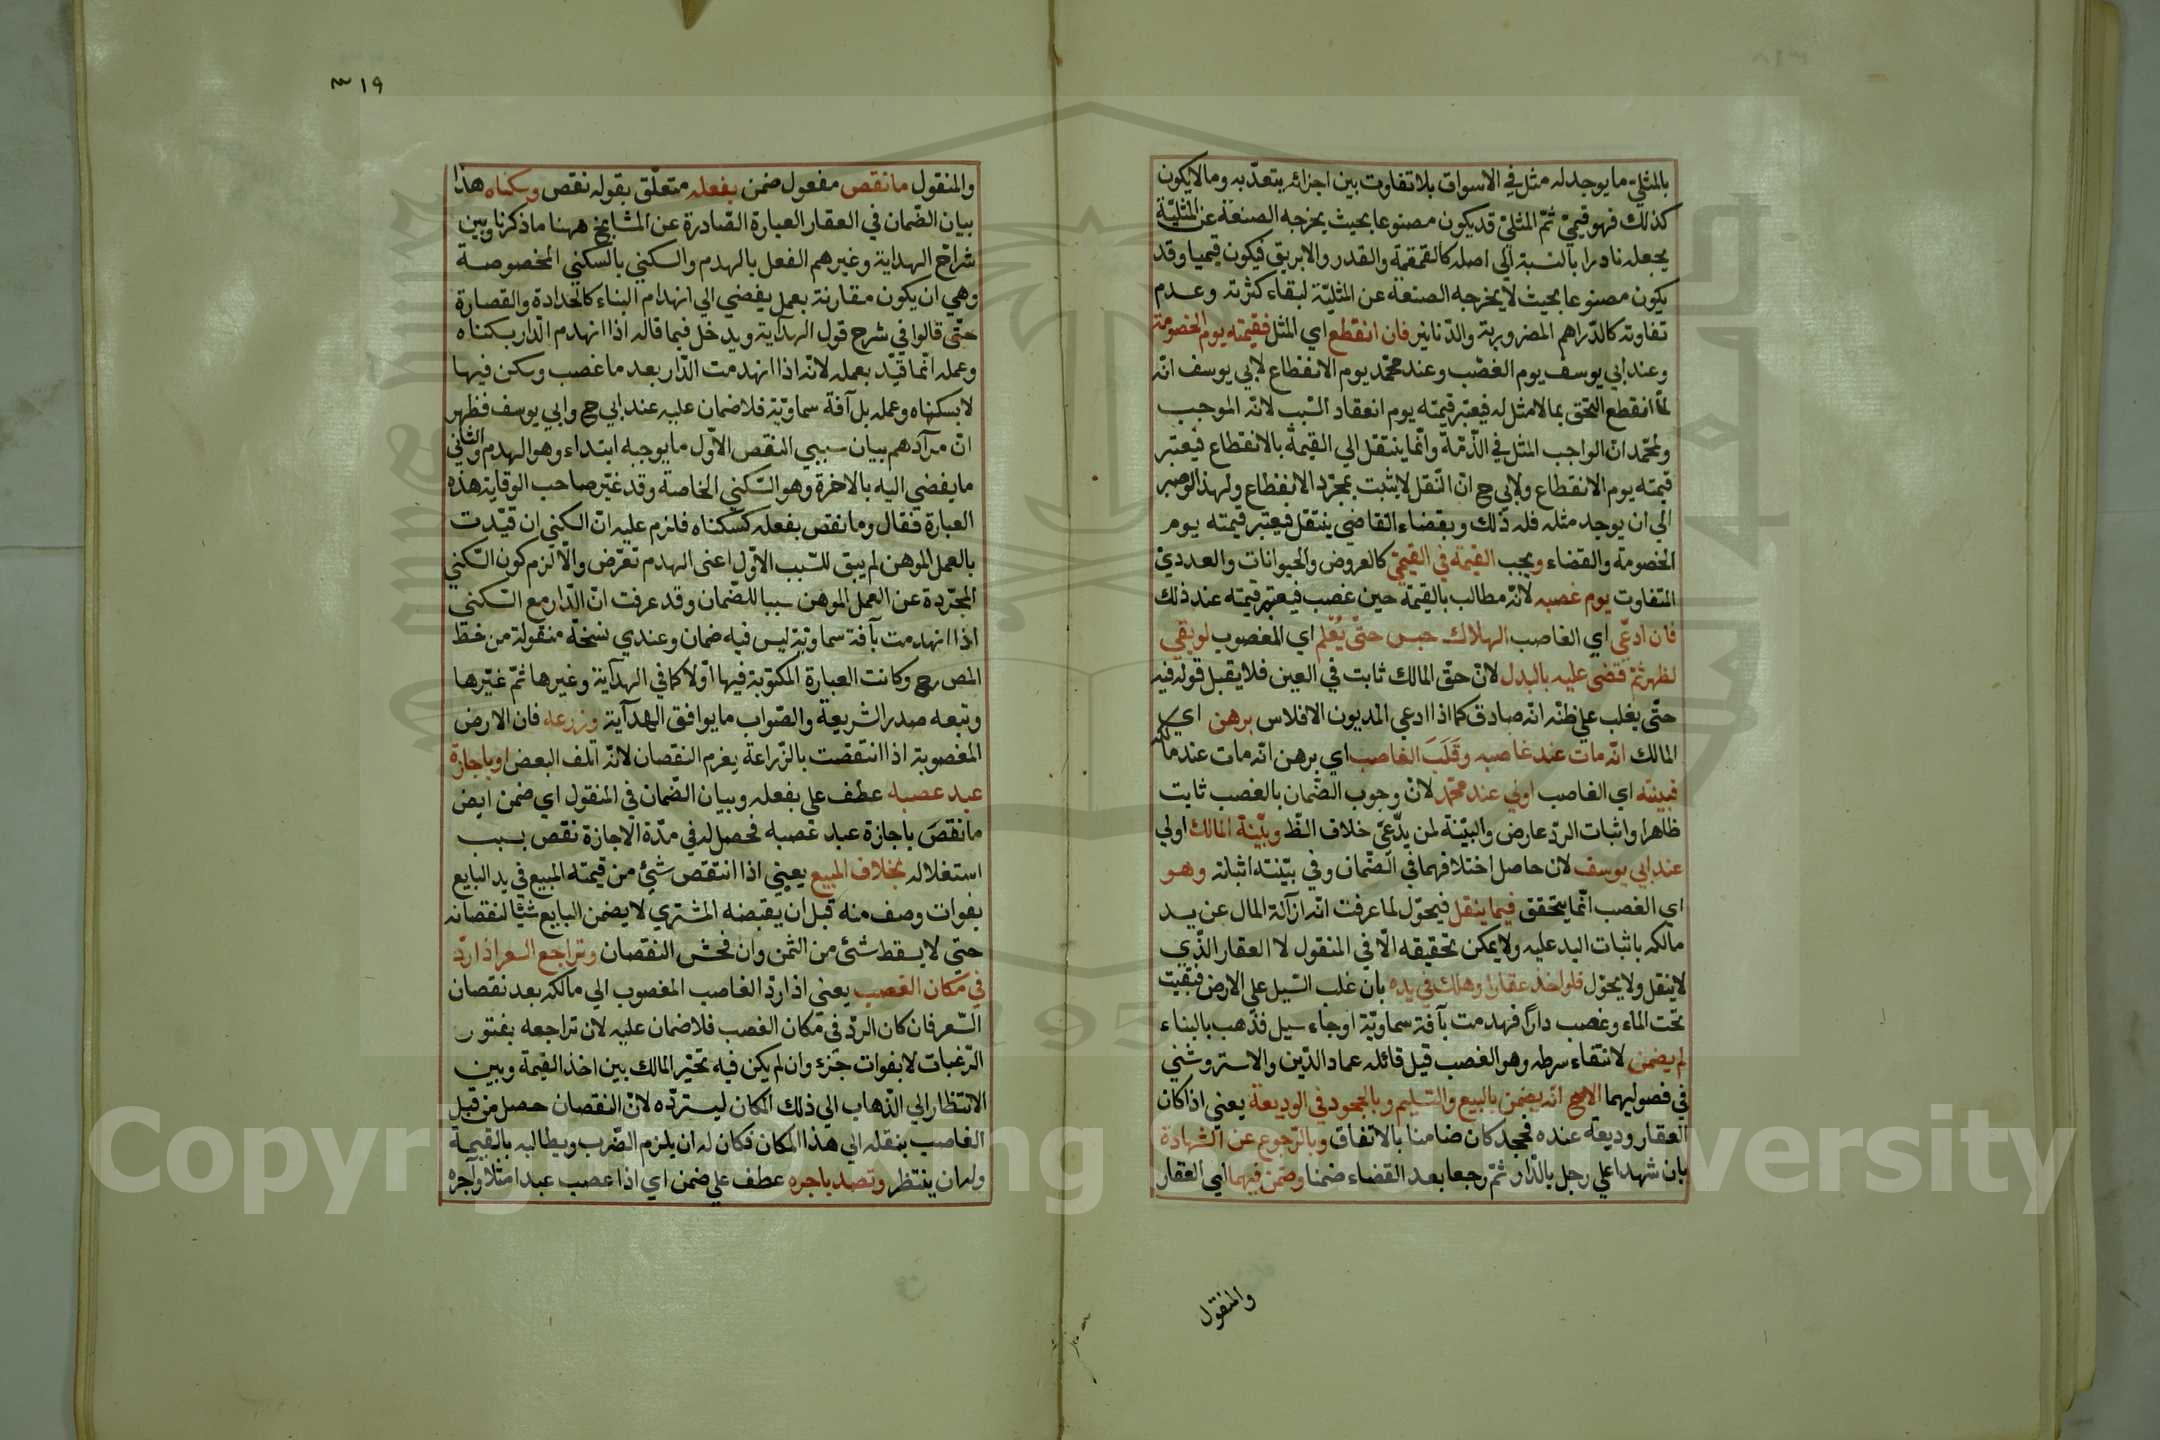 بالمثلي ما يوجد له مثل في الاسواق بلا تفاوت بين اجزائه يعتدّ به وما لا يكون
كذلك فهو قيمي ثمّ المثلي قد يكون مصنوعا بحيث يخرجه الصنعة عن المثليّة
بجعله نادرا بالنسبة الي اصله كالقمقمة والقدر والابريق فيكون قيميا وقد
يكون مصنوعا بحيث لا يخرجه الصنعة عن المثليّة لبقاء كثرته وعدم
تفاوته كالدّراهم المضروبة والدّنانير فان انقطع اي المثل فقيمته يوم الخصومة
وعند ابي يوسف يوم الغصب وعند محمّد يوم الانقطاع لابي يوسف انّه
لمّا انقطع التحق بما لا مثل له فيعتبر قيمته يوم انعقاد السّبب لانّه الموجب
ولمحمّد انّ الواجب المثل في الذّمّة وانّما ينتقل الي القيمة بالانقطاع فيعتبر
قيمته يوم الانقطاع ولابي ح انّ النّقل لا يثبت بمجرّد الانقطاع ولهذا لو صبر
الي ان يوجد مثله فله ذلك وبقضاء القاضي ينتقل فيعتبر قيمته يوم
الخصومة والقضاء ويجب القيمة في القيمي كالعروض والحيوانات والعدديّ
المتفاوت يوم غصبه لانّه مطالب بالقيمة حين غصب فيعتبر قيمته عند ذلك
فان ادعّي اي الغاصب الهلاك حبس حتّي يُعْلم اي المغصوب لو بقي
لظهر ثمّ قضي عليه بالبدل لانّ حقّ المالك ثابت في العين فلا يقبل قوله فيه
حتّي يغلب علي ظنّه انّه صادق كما اذا ادعي المديون الافلاس برهن اي
المالك انّه مات عند غاصبه وقَلَبَ الغاصب اي برهن انّه مات عند مالكه
فبينته اي الغاصب اولي عند محمّد لانّ وجوب الضّمان بالغصب ثابت
ظاهرا واثبات الردّ عارض والبيّنة لمن يدّعي خلاف الظ وبيّنة المالك اولي
عند ابي يوسف لان حاصل اختلافهما في الضّمان وفي بيّنته اثباته وهو
اي الغصب انّما يتحقق فيما ينقل فيحوّل لما عرفت انّه ازالة المال عن يد
مالكه باثبات اليد عليه ولا يمكن تحقيقه الّا في المنقول لا العقار الذّي
لا ينقل ولا يحوّل فلو اخذ عقارا وهلك في يده بان غلب السّيل علي الارض فبقيت
تحت الماء وغصب دارا فهدمت بآفة سماويّة او جاء سيل فذهب بالبناء
لم يضمن لانتفاء شرطه وهو الغصب قيل قائله عماد الدّين والاستروشني
في فصوليهما الاصح انّه يضمن بالبيع والتسليم وبالجحود في الوديعة يعني اذا كان
العقار وديعة عنده فجحد كان ضامنا بالاتفاق وبالرّجوع عن الشهادة
بان شهدا علي رجل بالدّار ثمّ رجعا بعد القضاء ضمنا وضمن فيهما اي العقار
والمنقول
٣١٩
والمنقول ما نقص مفعول ضمن بفعله متعلّق بقوله نقص وسكناه هذا
بيان الضّمان في العقار العبارة الصّادرة عن المشايخ ههنا ما ذكرنا وبين
شراح الهداية وغيرهم الفعل بالهدم والسكني بالسكني المخصوصة
وهي ان يكون مقارنة بعمل يفضي الي انهدام البناء كالحدادة والقصارة
حتّي قالوا في شرح قول الهداية ويدخل فيما قاله اذا انهدم الدّار بسكناه
وعمله انّما قيّد بعمله لانّه اذا انهدمت الدّار بعد ما غصب وسكن فيها
لا بسكناه وعمله بل آفة سماويّة فلا ضمان عليه عند ابي ح وابي يوسف فظهر
انّ مرادهم بيان سببي النقص الاوّل ما يوجبه ابتداء وهو الهدم والثاني
ما يفضي اليه بالاخرة وهو السّكني الخاصة وقد غيّر صاحب الوقاية هذه
العبارة فقال وما نقص بفعله كسكناه فلزم عليه انّ السكني ان قيّدت
بالعمل الموهن لم يبق للسّبب الاوّل اعني الهدم تعرّض والّا لزم كون السّكني
المجرّدة عن العمل الموهن سببا للضّمان وقد عرفت انّ الدّار مع السّكني
اذا انهدمت بآفة سماويّة ليس فيه ضمان وعندي نسخة منقولة من خط
المص رح وكانت العبارة المكتوبة فيها اوّلا كما في الهداية وغيرها ثمّ غيّرها
وتبعه صدر الشريعة والصّواب ما يوافق الهداية وزرعه فان الارض
المغصوبة اذا انتقضت بالزّراعة يغرم النقصان لانّه اتلف البعض او باجازة
عبد غصبه عطف علي بفعله وبيان الضّمان في المنقول اي ضمن ايض
ما نقصَ باجازة عبد غصبه فحصل له في مدّة الاجازة نقص بسبب
استغلاله بخلاف المبيع يعني اذا انتقص شئ من قيمته المبيع في يد البايع
بفوات وصف منه قبل ان يقبضه المشتري لا يضمن البايع شيئا لنقصانه
حتي لا يسقط شئ من الثمن وان فحش النقصان وتراجع السعر اذا ردّ
في مكان الغصب يعني اذا ردّ الغاصب المغصوب الي مالكه بعد نقصان
السّعر فان كان الردّ في مكان الغصب فلا ضمان عليه لان تراجعه بفتور
الرّغبات لا بفوات جزء وان لم يكن فيه تخيّر المالك بين اخذ القيمة وبين
الانتظار الي الذّهاب الي ذلك المكان ليستردّه لانّ النقصان حصل من قبل
الغاصب بنقله الي هذا المكان فكان له ان يلزم الضّرب ويطالبه بالقيمة
وله ان ينتظر وتصدّ باجره عطف علي ضمن اي اذا غصب عبدا مثلا وآجره
Copyright © King Saud University